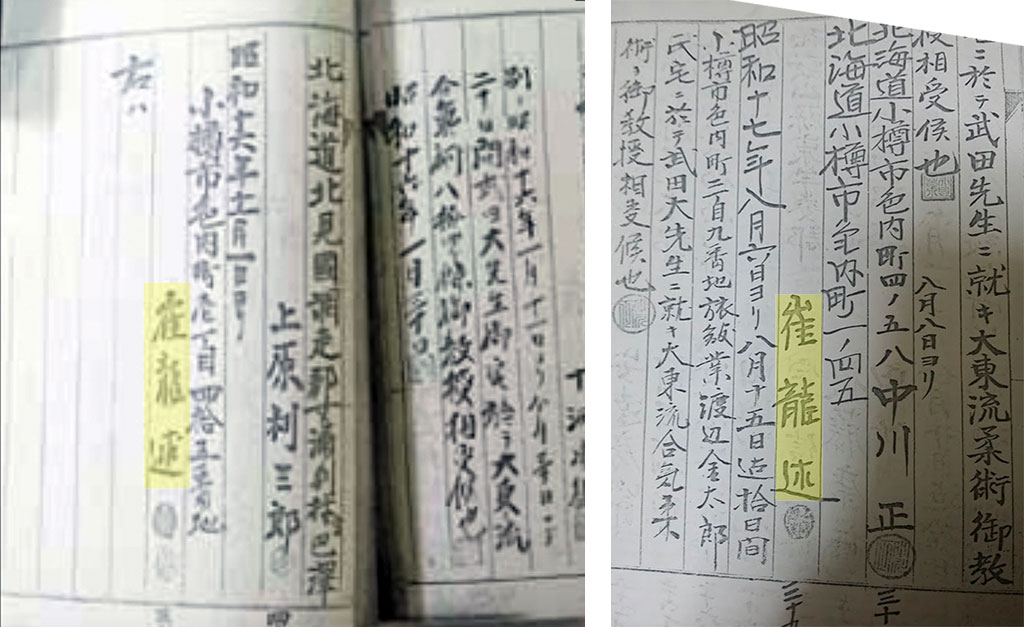 昭和十六年一月十一日ヨリ
二十日間武田大先生御宅於テ大東流
御教授相受候也
昭和十六年一月
北海道北見國網走郡
上原利三郎
四
昭和十六年
小樽市色内町壱丁目四拾五番地
崔龍述
右ハ
ニ於テ武田先生ニ就キ大東流柔術御教
授相受候也
八月八日ヨリ
北海道小樽市色内町四ノ五八中川正
三十
北海道小樽市色内町一ノ四五
崔龍述
三十九
昭和十七年八月六日ヨリ八月十五日迄拾日間
小樽市色内町三百九番地旅館業渡辺金太郎
氏宅ニ於テ武田大先生ニ就キ大東流合気柔
術ノ御教授相受候也